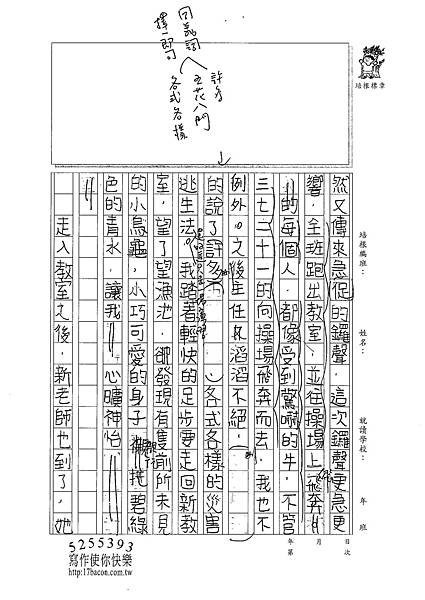 同義詞
擇一即可
許多
五花八門
各式各樣
培根標章
培根編班：
姓名：
就讀學校：
年 班
然又傳來急促的鑼聲，這次鑼聲更急更
響，全班跑出教室，並往操場上飛奔
的每個人，都像受到驚嚇的牛，不管
三七二十一的向操場飛奔而去，我也不
例外。之後主任滔滔不絕
的說了許多
各式各樣的災害
逃生法。我踏著輕快的足步要走回新教
室，望了望漁池，卻發現有隻前所未見
的小烏龜，小巧可愛的身子
碧綠
色的青水，讓我
心曠神怡。
走入教室之後，新老師也到了，她
年 月 日
第 次
5255393
寫作使你快樂
http://17bacon.com.tw